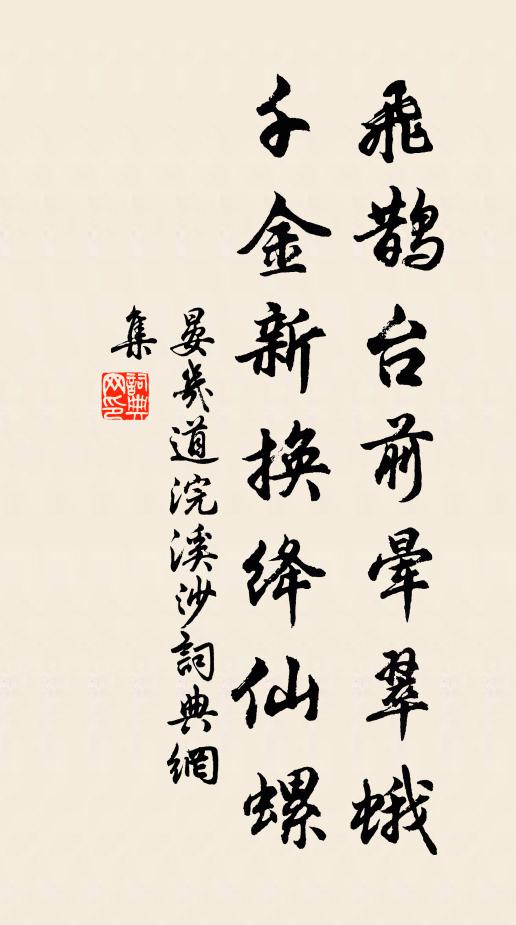 飛鵲台前暈翠蛾
千金新換絳仙螺
晏幾道浣溪沙詞典網
集
詞典網印